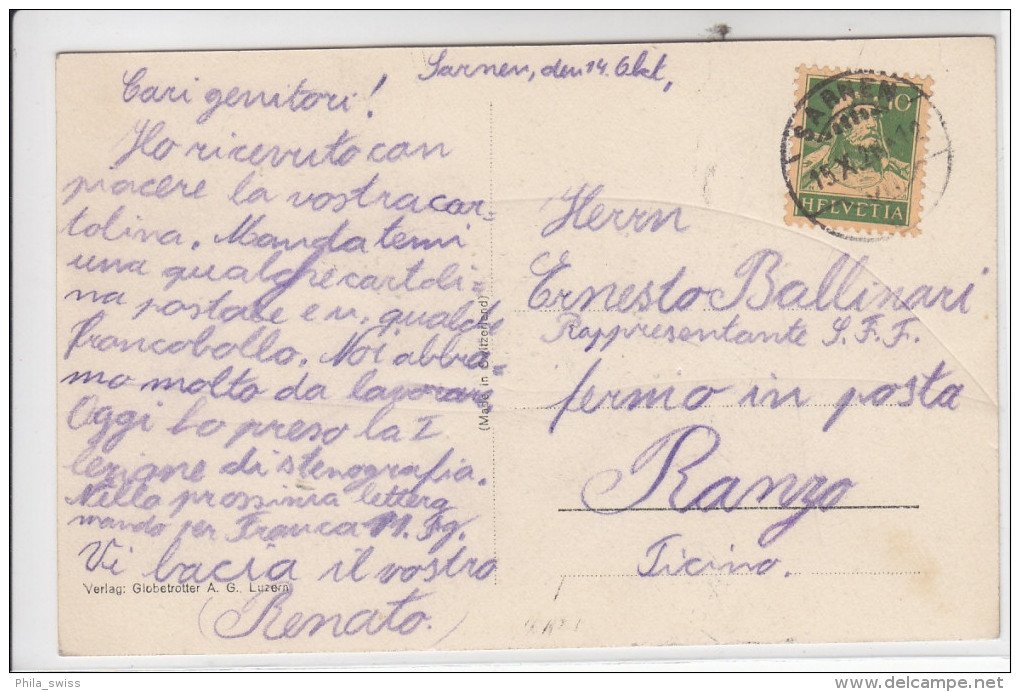 Sarnen, den 14. Okt,
Cari genitori!
Ho ricevuto con
piacere la vostra car-
tolina. Mandatemi
una qualche cartoli-
na postale e u. qualche
francobollo. Noi abbia-
mo molto da lavorare,
Oggi ho preso la I
lezione di stenografia.
Nella prossima lettera
mando per Franca M. Fg.
Vi bacia il vostro
(Renato.)
Verlag: Globetrotter A. G., Luzern
(Made in Switzerland)
SARNEN
15.X.
10
HELVETIA
Herrn
Ernesto Ballinari
Rappresentante S. F. F.
fermo in posta
Ranzo
Ticino.
Phila_swiss
delcampe.net